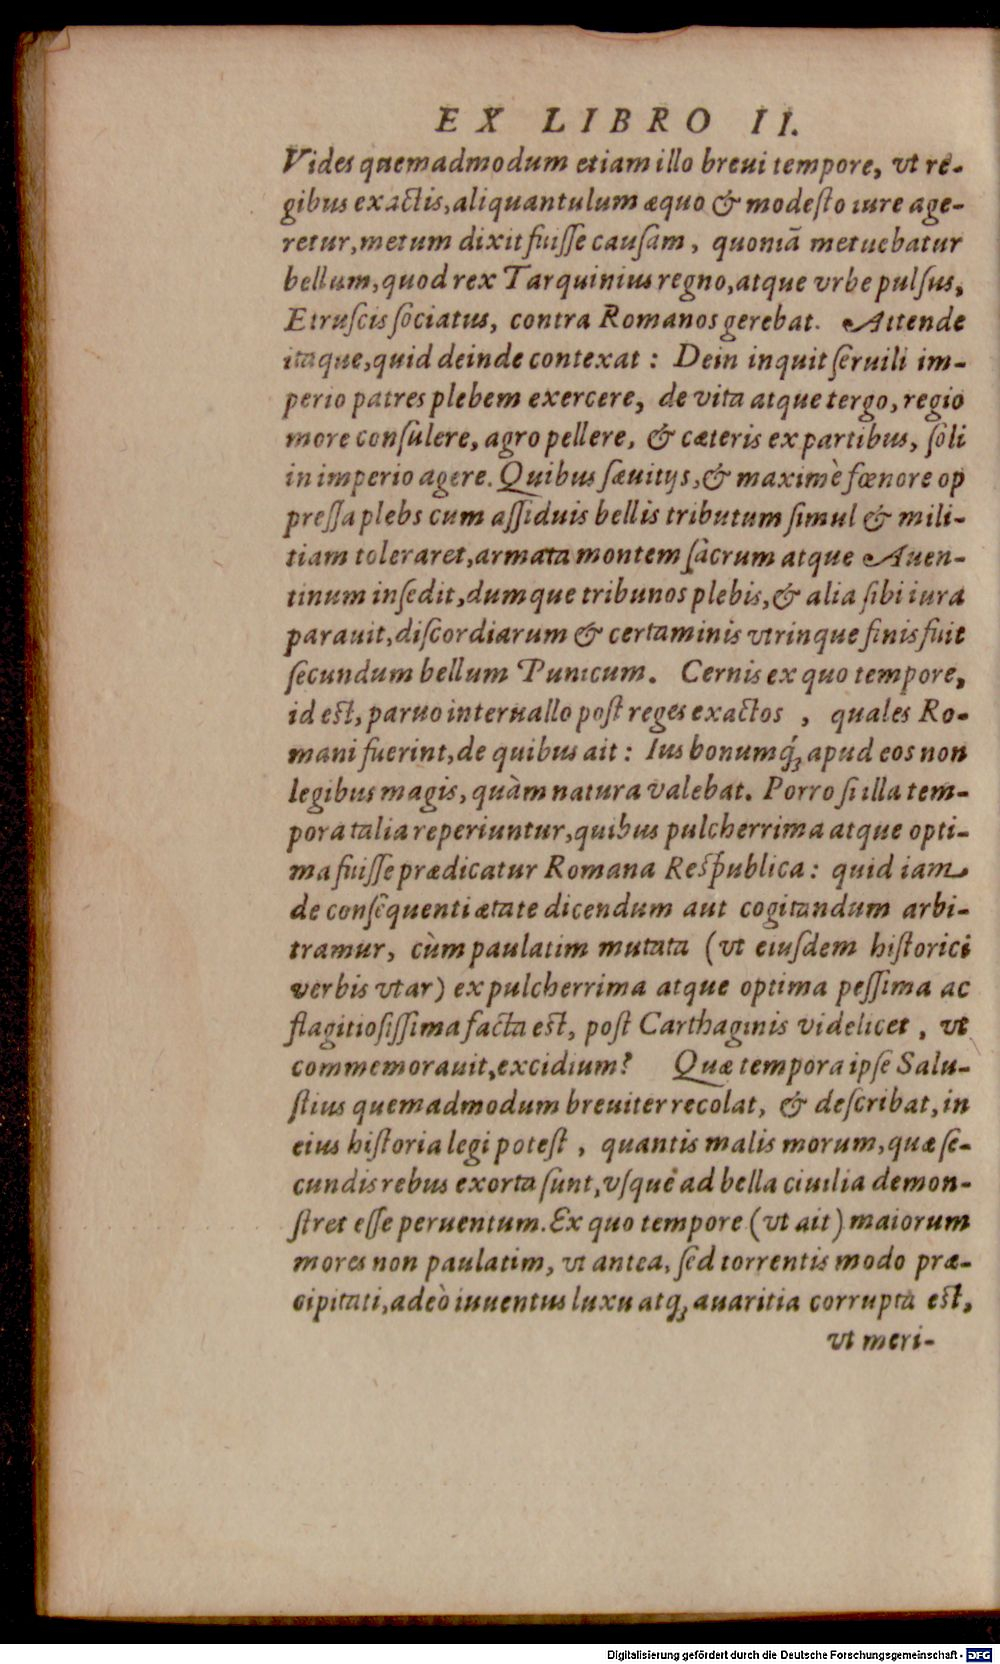 EX LIBRO II.
Vides quemadmodum etiam illo breui tempore, vt re-
gibus exactis, aliquantulum æquo & modeſto iure age-
retur, metum dixit fuiſſe cauſam, quoniā metuebatur
bellum, quod rex Tarquinius regno, atque vrbe pulſus,
Etruſcis ſociatus, contra Romanos gerebat. Attende
itaque, quid deinde contexat: Dein inquit ſeruili im-
perio patres plebem exercere, de vita atque tergo, regio
more conſulere, agro pellere, & cæteris ex partibus, ſoli
in imperio agere. Quibus ſæuitijs, & maximè fœnore op
preſſa plebs cum aſſiduis bellis tributum ſimul & mili-
tiam toleraret, armata montem ſacrum atque Auen-
tinum inſedit, dumque tribunos plebis, & alia ſibi iura
parauit, diſcordiarum & certaminis vtrinque finis fuit
ſecundum bellum Punicum. Cernis ex quo tempore,
id eſt, paruo interuallo poſt reges exactos, quales Ro-
mani fuerint, de quibus ait: Ius bonumq́; apud eos non
legibus magis, quàm natura valebat. Porro ſi illa tem-
pora talia reperiuntur, quibus pulcherrima atque opti-
ma fuiſſe prædicatur Romana Reſpublica: quid iam
de conſequenti ætate dicendum aut cogitandum arbi-
tramur, cùm paulatim mutata (vt eiuſdem hiſtorici
verbis vtar) ex pulcherrima atque optima peſſima ac
flagitioſiſſima facta eſt, poſt Carthaginis videlicet, vt
commemorauit, excidium? Quæ tempora ipſe Salu-
ſtius quemadmodum breuiter recolat, & deſcribat, in
eius hiſtoria legi poteſt, quantis malis morum, quæ ſe-
cundis rebus exorta ſunt, vſque ad bella ciuilia demon-
ſtret eſſe peruentum. Ex quo tempore (vt ait) maiorum
mores non paulatim, vt antea, ſed torrentis modo præ-
cipitati, adeò iuuentus luxu atq; auaritia corrupta eſt,
vt meri-
Digitalisierung gefördert durch die Deutsche Forschungsgemeinschaft - DFG